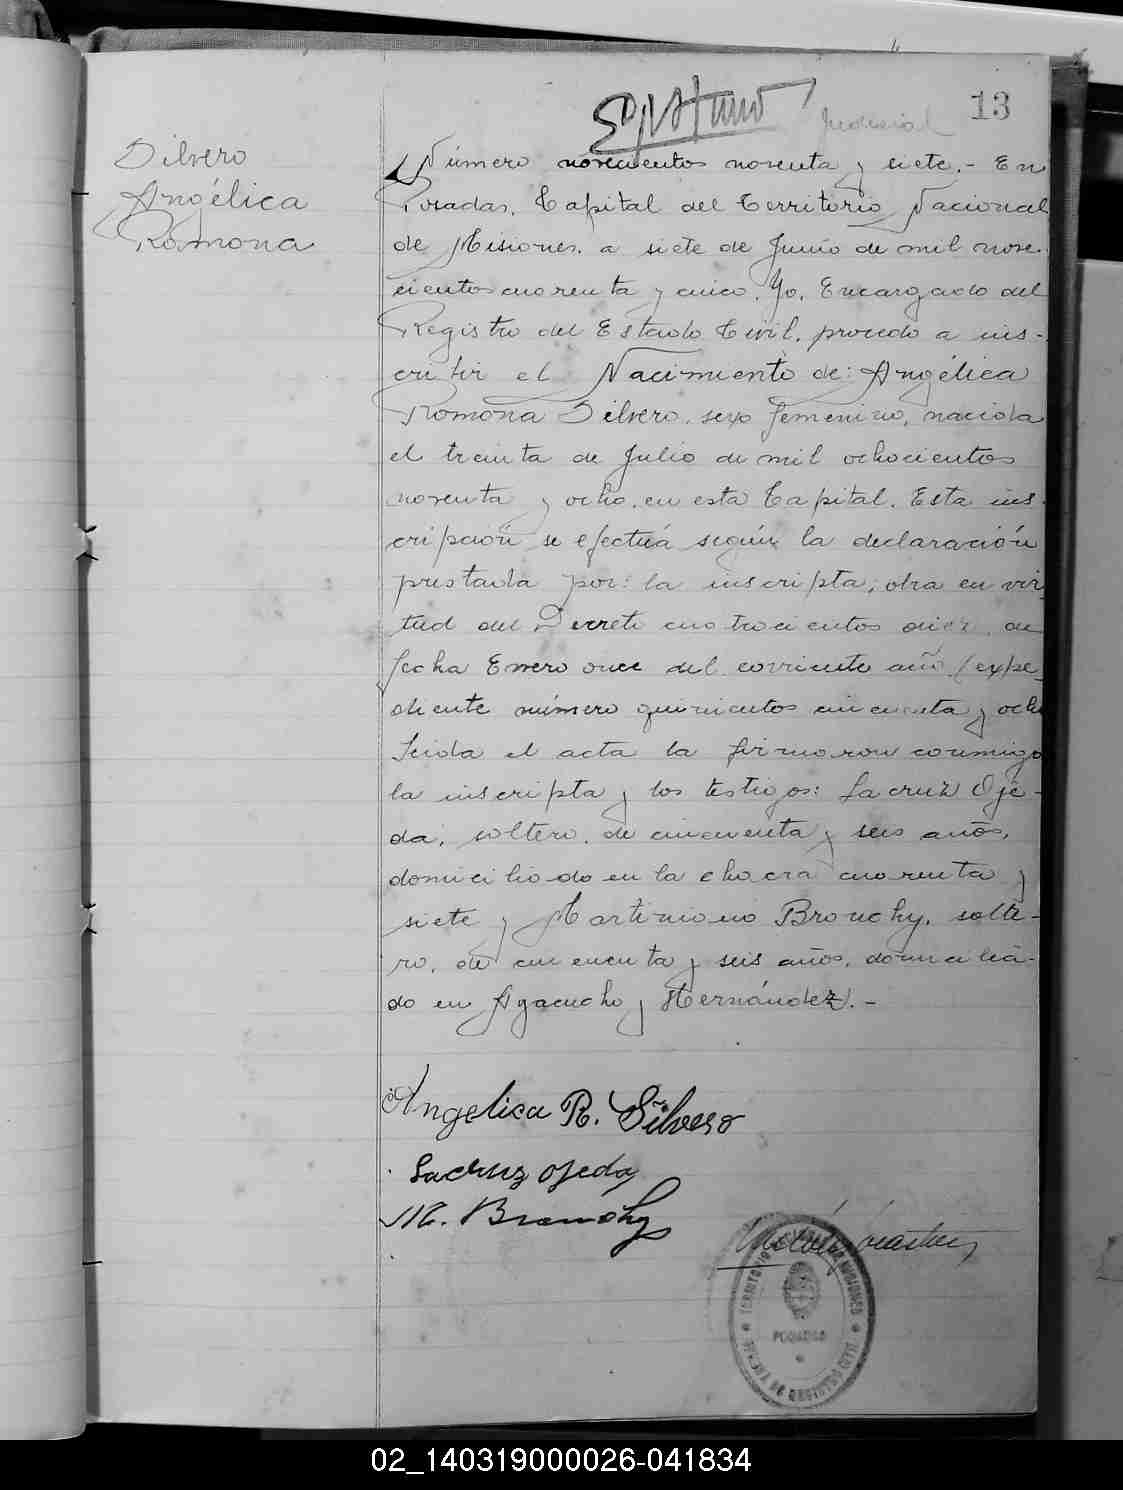 13
Judicial
Silvero
Angélica
Ramona
Número novecientos noventa y siete.- En
Posadas, Capital del Territorio Nacional
de Misiones, a siete de Junio de mil nove-
cientos cuarenta y cinco. Yo, Encargado del
Registro del Estado Civil, procedo a ins-
cribir el Nacimiento de: Angélica
Ramona Silvero, sexo femenino, nacida
el treinta de Julio de mil ochocientos
noventa y ocho, en esta Capital. Esta ins-
cripción se efectúa según la declaración
prestada por: la inscripta, obra en vir-
tud del Decreto cuatrocientos diez, de
fecha Enero once del corriente año (expe-
diente número quinientos cincuenta y ocho
Leida el acta la firmaron conmigo
la inscripta y los testigos: Lacruz Oje-
da, soltero, de cincuenta y seis años,
domiciliado en la chacra cuarenta y
siete y Martiniano Bronchy, solte-
ro, de cincuenta y seis años, domicilia-
do en Ayacucho y Hernández.-
Angelica R. Silvero
Lacruz Ojeda
M. Bronchy
POSADAS
02_140319000026-041834